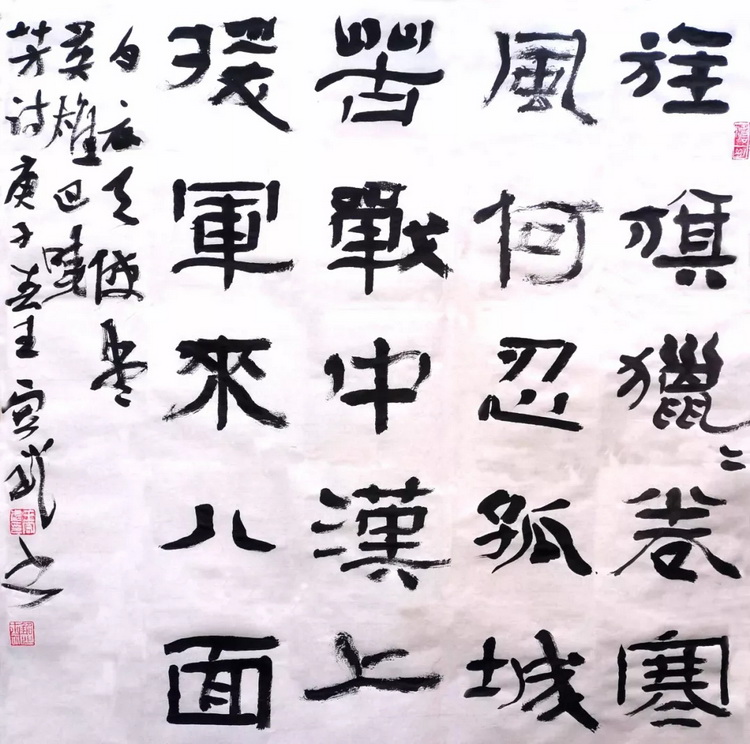 旌旗獵〻卷寒
風何忍孤城
苦戰中漢上
援軍來八面
白衣天使盡
英雄巴曉
芳詩庚子春王武书